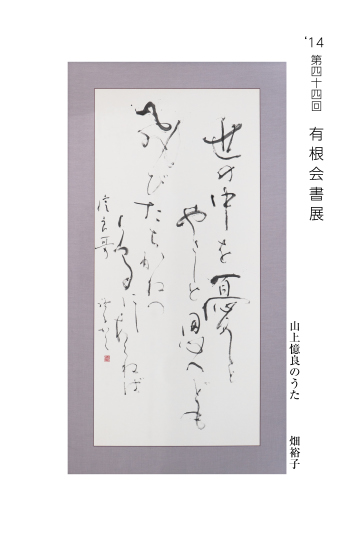 '14
第四十四回 有根会書展
世の中を憂しと
やさしと思へども
飛びたちかねつ
鳥にしあらねば
憶良哥
山上憶良のうた 畑裕子